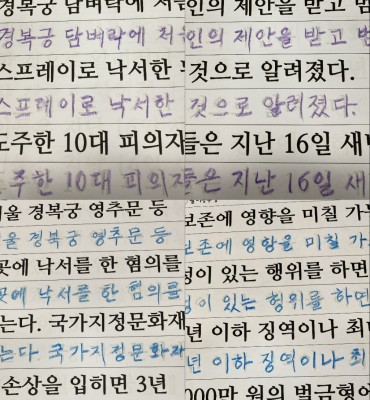 경복궁 담벼락에
경복궁 담벼락에 저
스프레이로 낙서한
스프레이로 낙서한
도주한 10대 피의자
주한 10대 피의자
인의 제안을 받고 범
인의 제안을 받고 범
것으로 알려졌다.
것으로 알려졌다.
들은 지난 16일 새벽
들은 지난 16일 새
서울 경복궁 영추문 등
울 경복궁 영추문 등
곳에 낙서를 한 혐의를
곳에 낙서를 한 혐의를
는다. 국가지정문화재
는다 국가지정문화재
손상을 입히면 3년
보존에 영향을 미칠 가
보존에 영향을 미칠 가
성이 있는 행위를 하면
성이 있는 헝위를 하면
년 이하 징역이나 최
년 이하 징역이나 최
000만 원의 벌금형에